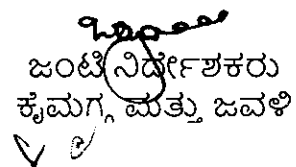 ಜಂಟಿ ನಿರ್ದೇಶಕರು
ಕೈಮಗ್ಗ ಮತ್ತು ಜವಳಿ